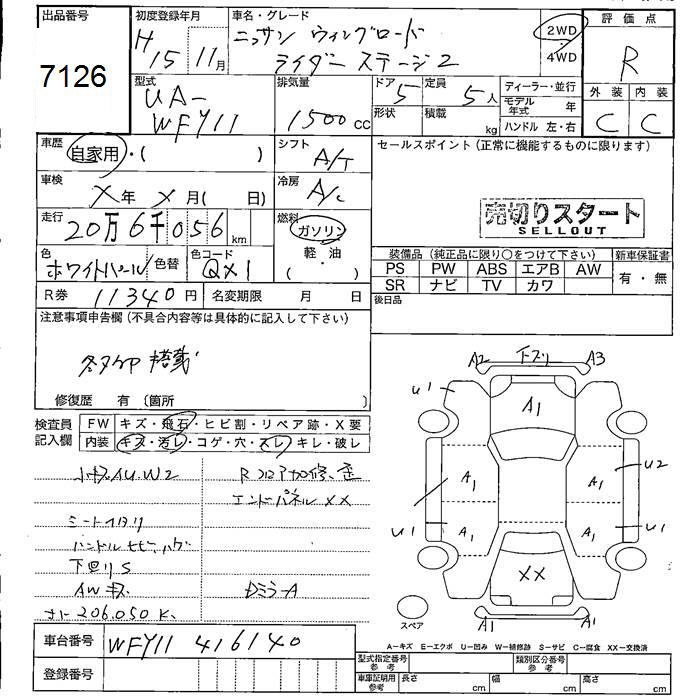 出品番号
7126
初度登録年月
H15 11月
車名・グレード
ニッサン ウィングロード
ライダー ステージ2
2WD・4WD
評価点
R
外装 内装
C C
型式
UA-
WFY11
排気量
1500cc
ドア 5
形状
定員 5人
積載 kg
ディーラー・並行
モデル年式 年
ハンドル 左・右
車歴
自家用・( )
シフト A/T
セールスポイント (正常に機能するものに限ります)
車検
X年 X月( 日)
冷房 A/C
売切りスタート
SELLOUT
走行
20万6千056km
燃料
ガソリン
軽・油
( )
色
ホワイトパール
色替
色コード
QX1
装備品 (純正品に限り○をつけて下さい)
新車保証書
PS PW ABS エアB AW
有・無
SR ナビ TV カワ
R券 11340円
名変期限 月 日
後日品
注意事項申告欄 (不具合内容等は具体的に記入して下さい)
搭載
修復歴 有 〔箇所 〕
検査員記入欄
FW キズ・飛石・ヒビ割・リペア跡・X要
内装 キズ・汚レ・コゲ・穴・スレ・キレ・破レ
小キズAU.W2
Rフロア加修、歪
エンドパネル XX
シートヘタリ
下回りS
AWキズ
Dミラ-A
206.050K
A2 下スリ A3
U1
A1
A1 A1 U2
U1 A1 A1 U1
XX
A1 A1
スペア
A-キズ E-エクボ U-凹み W-補修跡 S-サビ C-腐食 XX-交換済
車台番号
WFY11 416140
型式指定番号 参考
類別区分番号 参考
登録番号
車庫証明用 参考
長さ cm
幅 cm
高さ cm